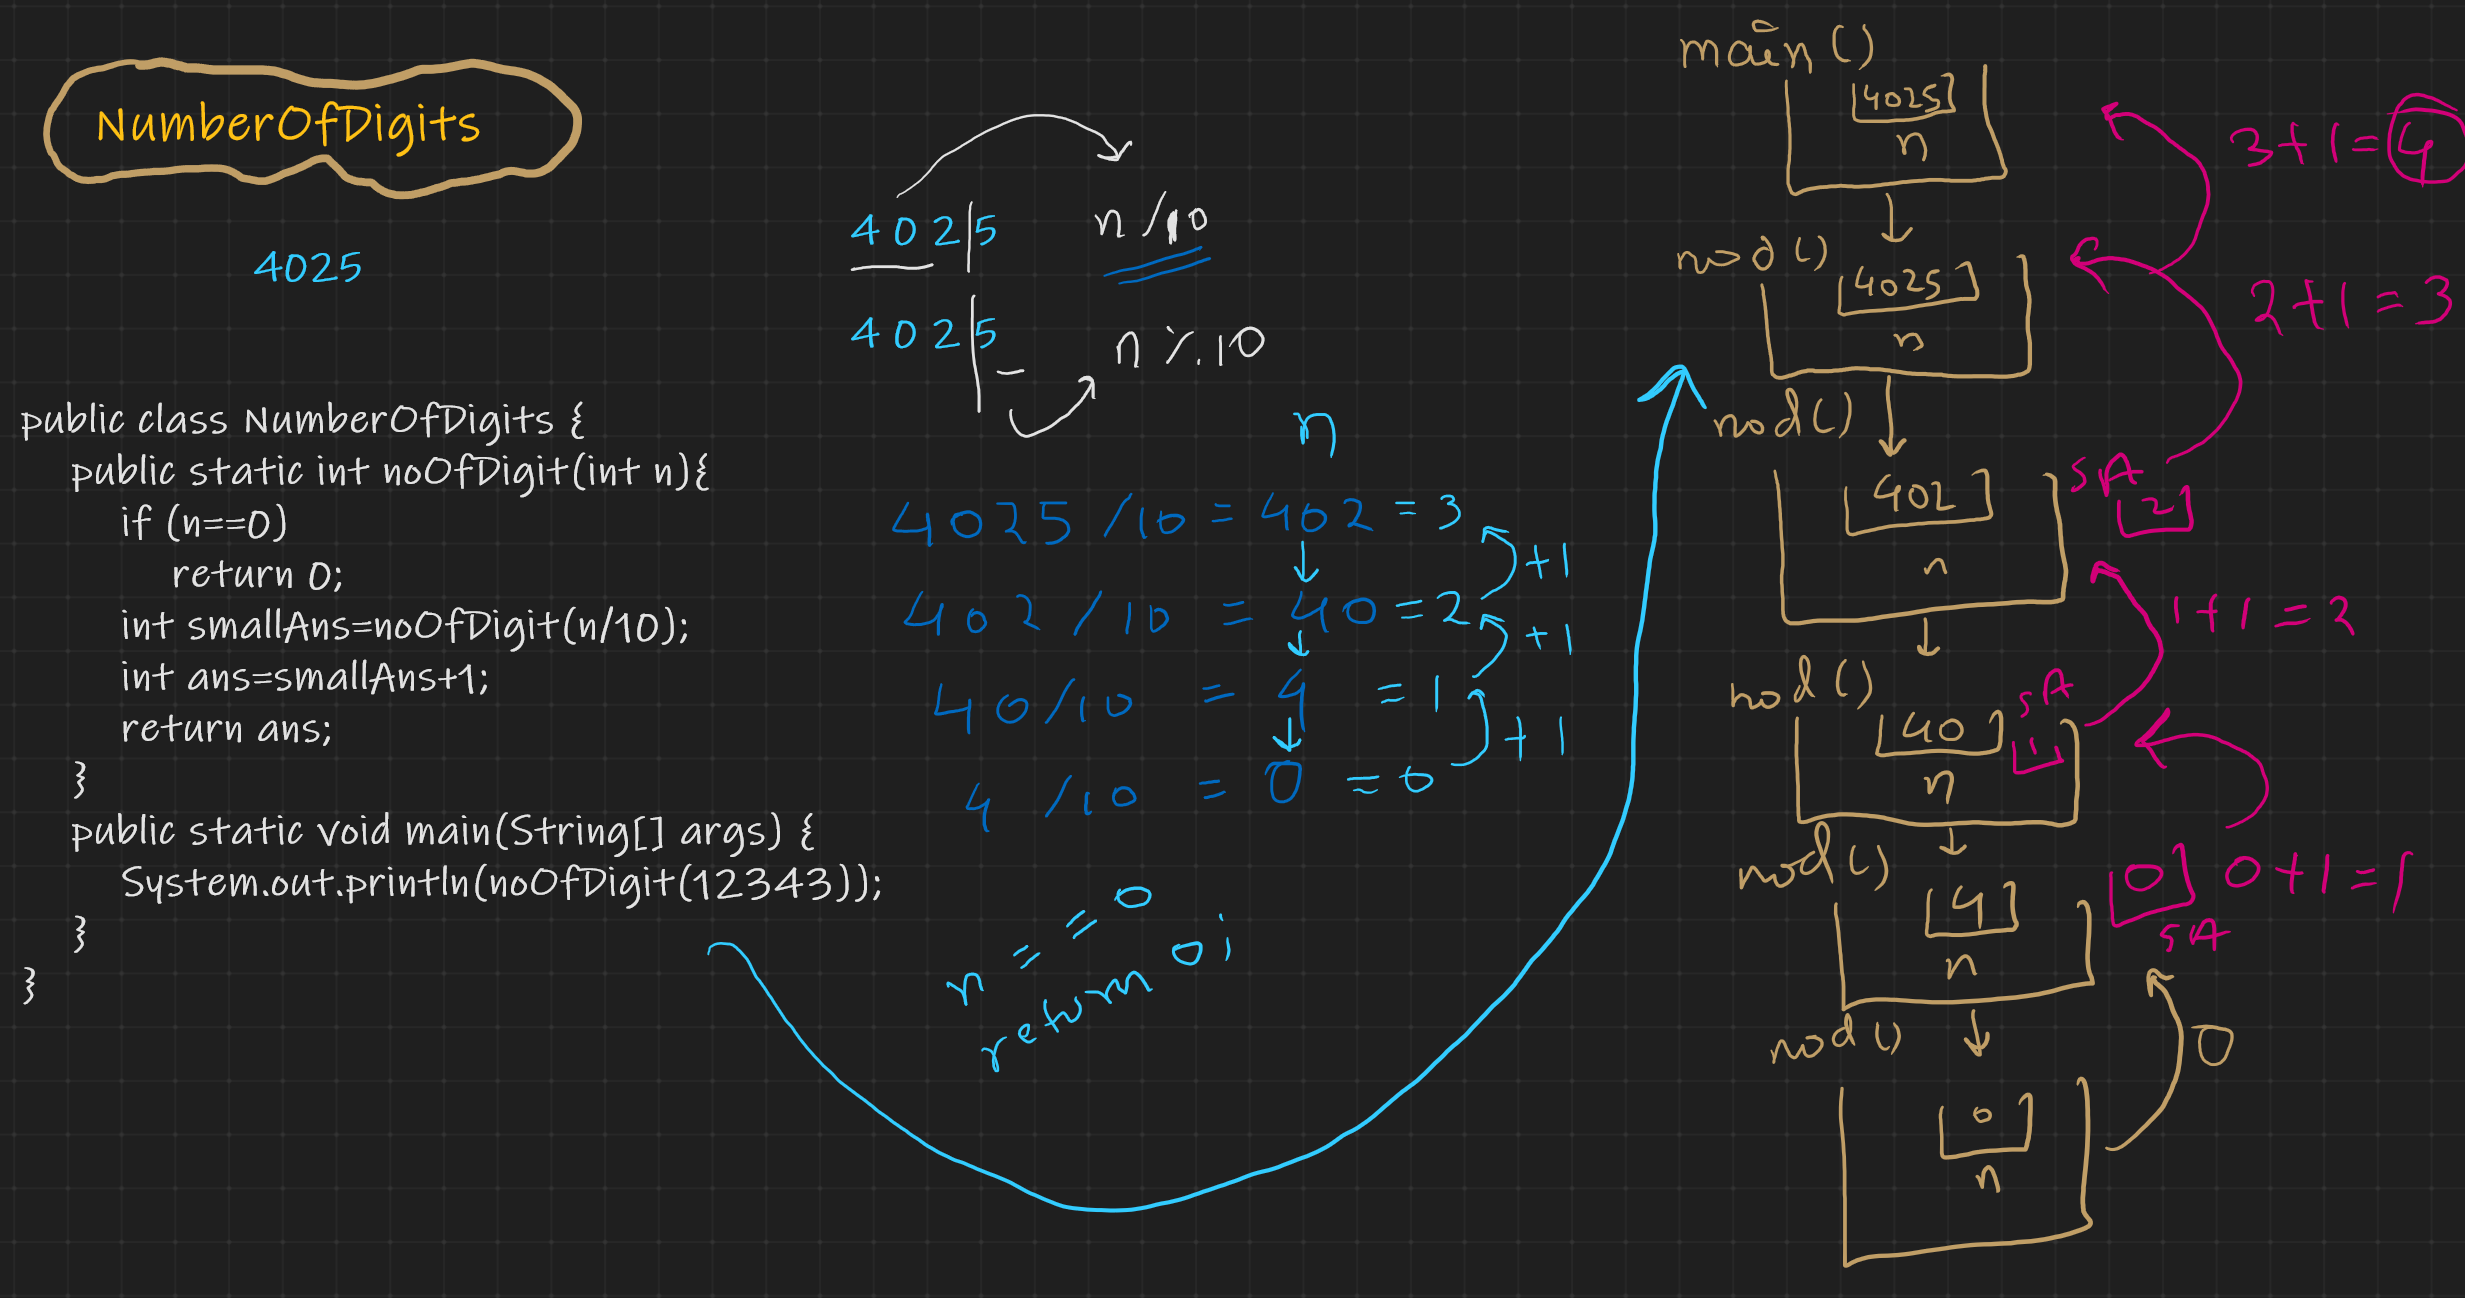 NumberOfDigits
4025
public class NumberOfDigits {
public static int noOfDigit(int n){
if (n==0)
return 0;
int smallAns=noOfDigit(n/10);
int ans=smallAns+1;
return ans;
}
public static void main(String[] args) {
System.out.println(noOfDigit(12343));
}
}
4025 n/10
4025 n%10
n
4025/10 = 402 = 3
+1
402/10 = 40 = 2
+1
40/10 = 4 = 1
+1
4/10 = 0 = 0
n==0
return 0;
main()
4025
n
3+1=4
nod()
4025
n
2+1=3
nod()
402
n
SA
2
1+1=2
nod()
40
n
SA
1
nod()
4
n
0 0+1=1
SA
nod()
0
0
n